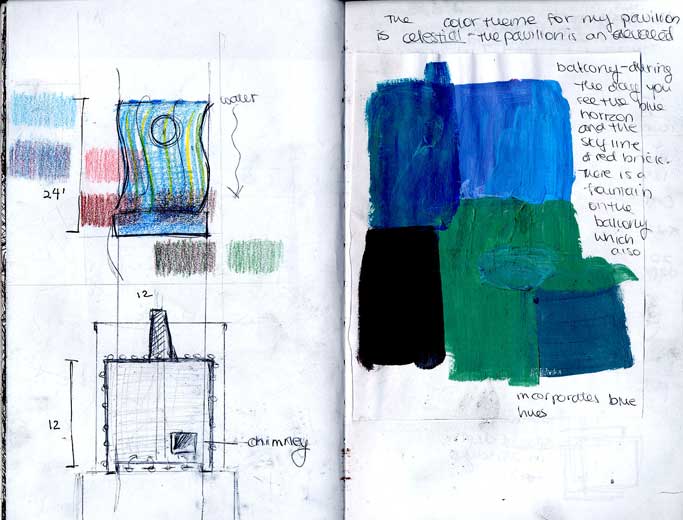 water
24'
12
12
chimney
The color theme for my pavilion
is celestial - the pavilion is an elevated
balcony - during
the day you
see the blue
horizon
and the
sky line
of red brick.
There is a
fountain
on the
balcony
which
also
incorporates blue
hues